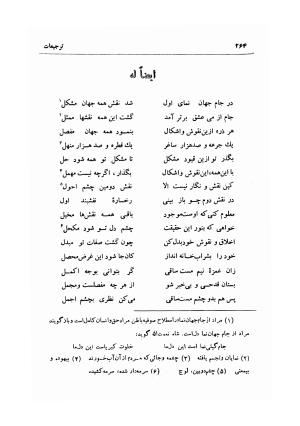 ۲۶۴
ترجیعات
ایضاً له
در جام جهان نمای اول شد نقش همه جهان مشکل۱
جام از می عشق برتر آمد گشت این همه نقشها ممثل۲
هر ذره ازین نقوش واشکال بنمود همه جهان مفصل
یک جرعه و صدهزار ساغر یک قطره و صد هزار منهل۳
بگذر تو ازین قیود مشکل تا مشکل تو همه شود حل
با این همه، این نقوش واشکال بگذار، اگرچه نیست مهمل۴
کین نقش و نگار نیست الا نقش دومین چشم احول۵
در نقش دوم چو باز بینی رخسارهٔ نقشبند اول
معلوم کنی که اوست موجود باقی همه نقشها مخیل
خواهی که بنور این حقیقت چشم دل تو شود مکحل۶
اخلاق و نقوش خود بدل کن چون گشت صفات تو مبدل
خود را بشرابخانه انداز کان جا شود این غرض محصل
زان غمزهٔ نیم مست ساقی گر بتوانی بوجه اکمل
بستان قدحی و بی خبر شو از هر چه مفصلست ومجمل
پس هم بدو چشم مست ساقی می کن نظری بچشم اجمل
(۱) مراد از جام جهان نما در اصطلاح صوفیه باطن مراد حق و انسان کامل است و باز گویند
مراد از جام جهان نما دل است. شاه نعمت الله گوید:
جام گیتی نما است این دل ما خلوت کبریاست این دل ما
(۲) نمایان و تجسم یافته (۳) چشمه و جائی که مردم از آن آب خورند (۴) بیهوده و
بیمعنی (۵) چپ و دوبین، لوچ (۶) سرمه دار شده، سرمه کشیده